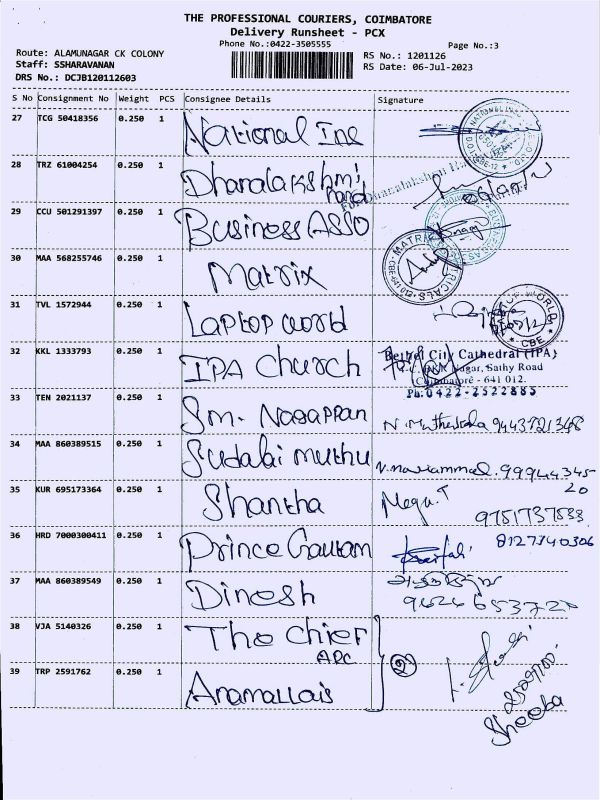 THE PROFESSIONAL COURIERS, COIMBATORE
Delivery Runsheet - PCX
Phone No.:0422-3505555
Page No.:3
Route: ALAMUNAGAR CK COLONY
Staff: SSHARAVANAN
DRS No.: DCJB120112603
RS No.: 1201126
RS Date: 06-Jul-2023
S No Consignment No Weight PCS Consignee Details Signature
27 TCG 50418356 0.250 1 National Inc
28 TRZ 61004254 0.250 1 Dhanalakshmi
hand
29 CCU 501291397 0.250 1 Business Asso
30 MAA 568255746 0.250 1 Matrix
31 TVL 1572944 0.250 1 Laptop world
32 KKL 1333793 0.250 1 IPA Church
Bethel City Cathedral (IPA)
Nagar, Sathy Road
Coimbatore - 641 012.
Ph:0422-2522885
33 TEN 2021137 0.250 1 Sm. Nagappan
34 MAA 860389515 0.250 1 Sudalai muthu
35 KUR 695173364 0.250 1 Shantha Mega.T
9751737533
36 HRD 7000300411 0.250 1 Prince Gautam 8127740306
37 MAA 860389549 0.250 1 Dinesh
38 VJA 5140326 0.250 1 The Chief
APC
39 TRP 2591762 0.250 1 Anamallais
2
Sheeba